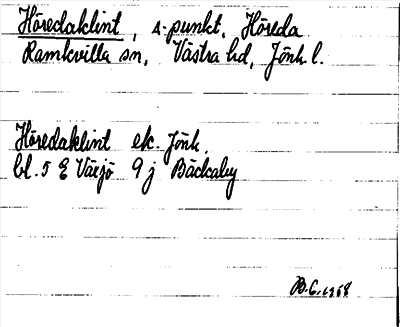 Höredaklint, s-punkt, Höreda
Ramkvilla sn, Västra hd, Jönk l.
Höredaklint ek. Jönk.
bl. 5 E Växjö 9 j Bäckaby
B.G. 1968